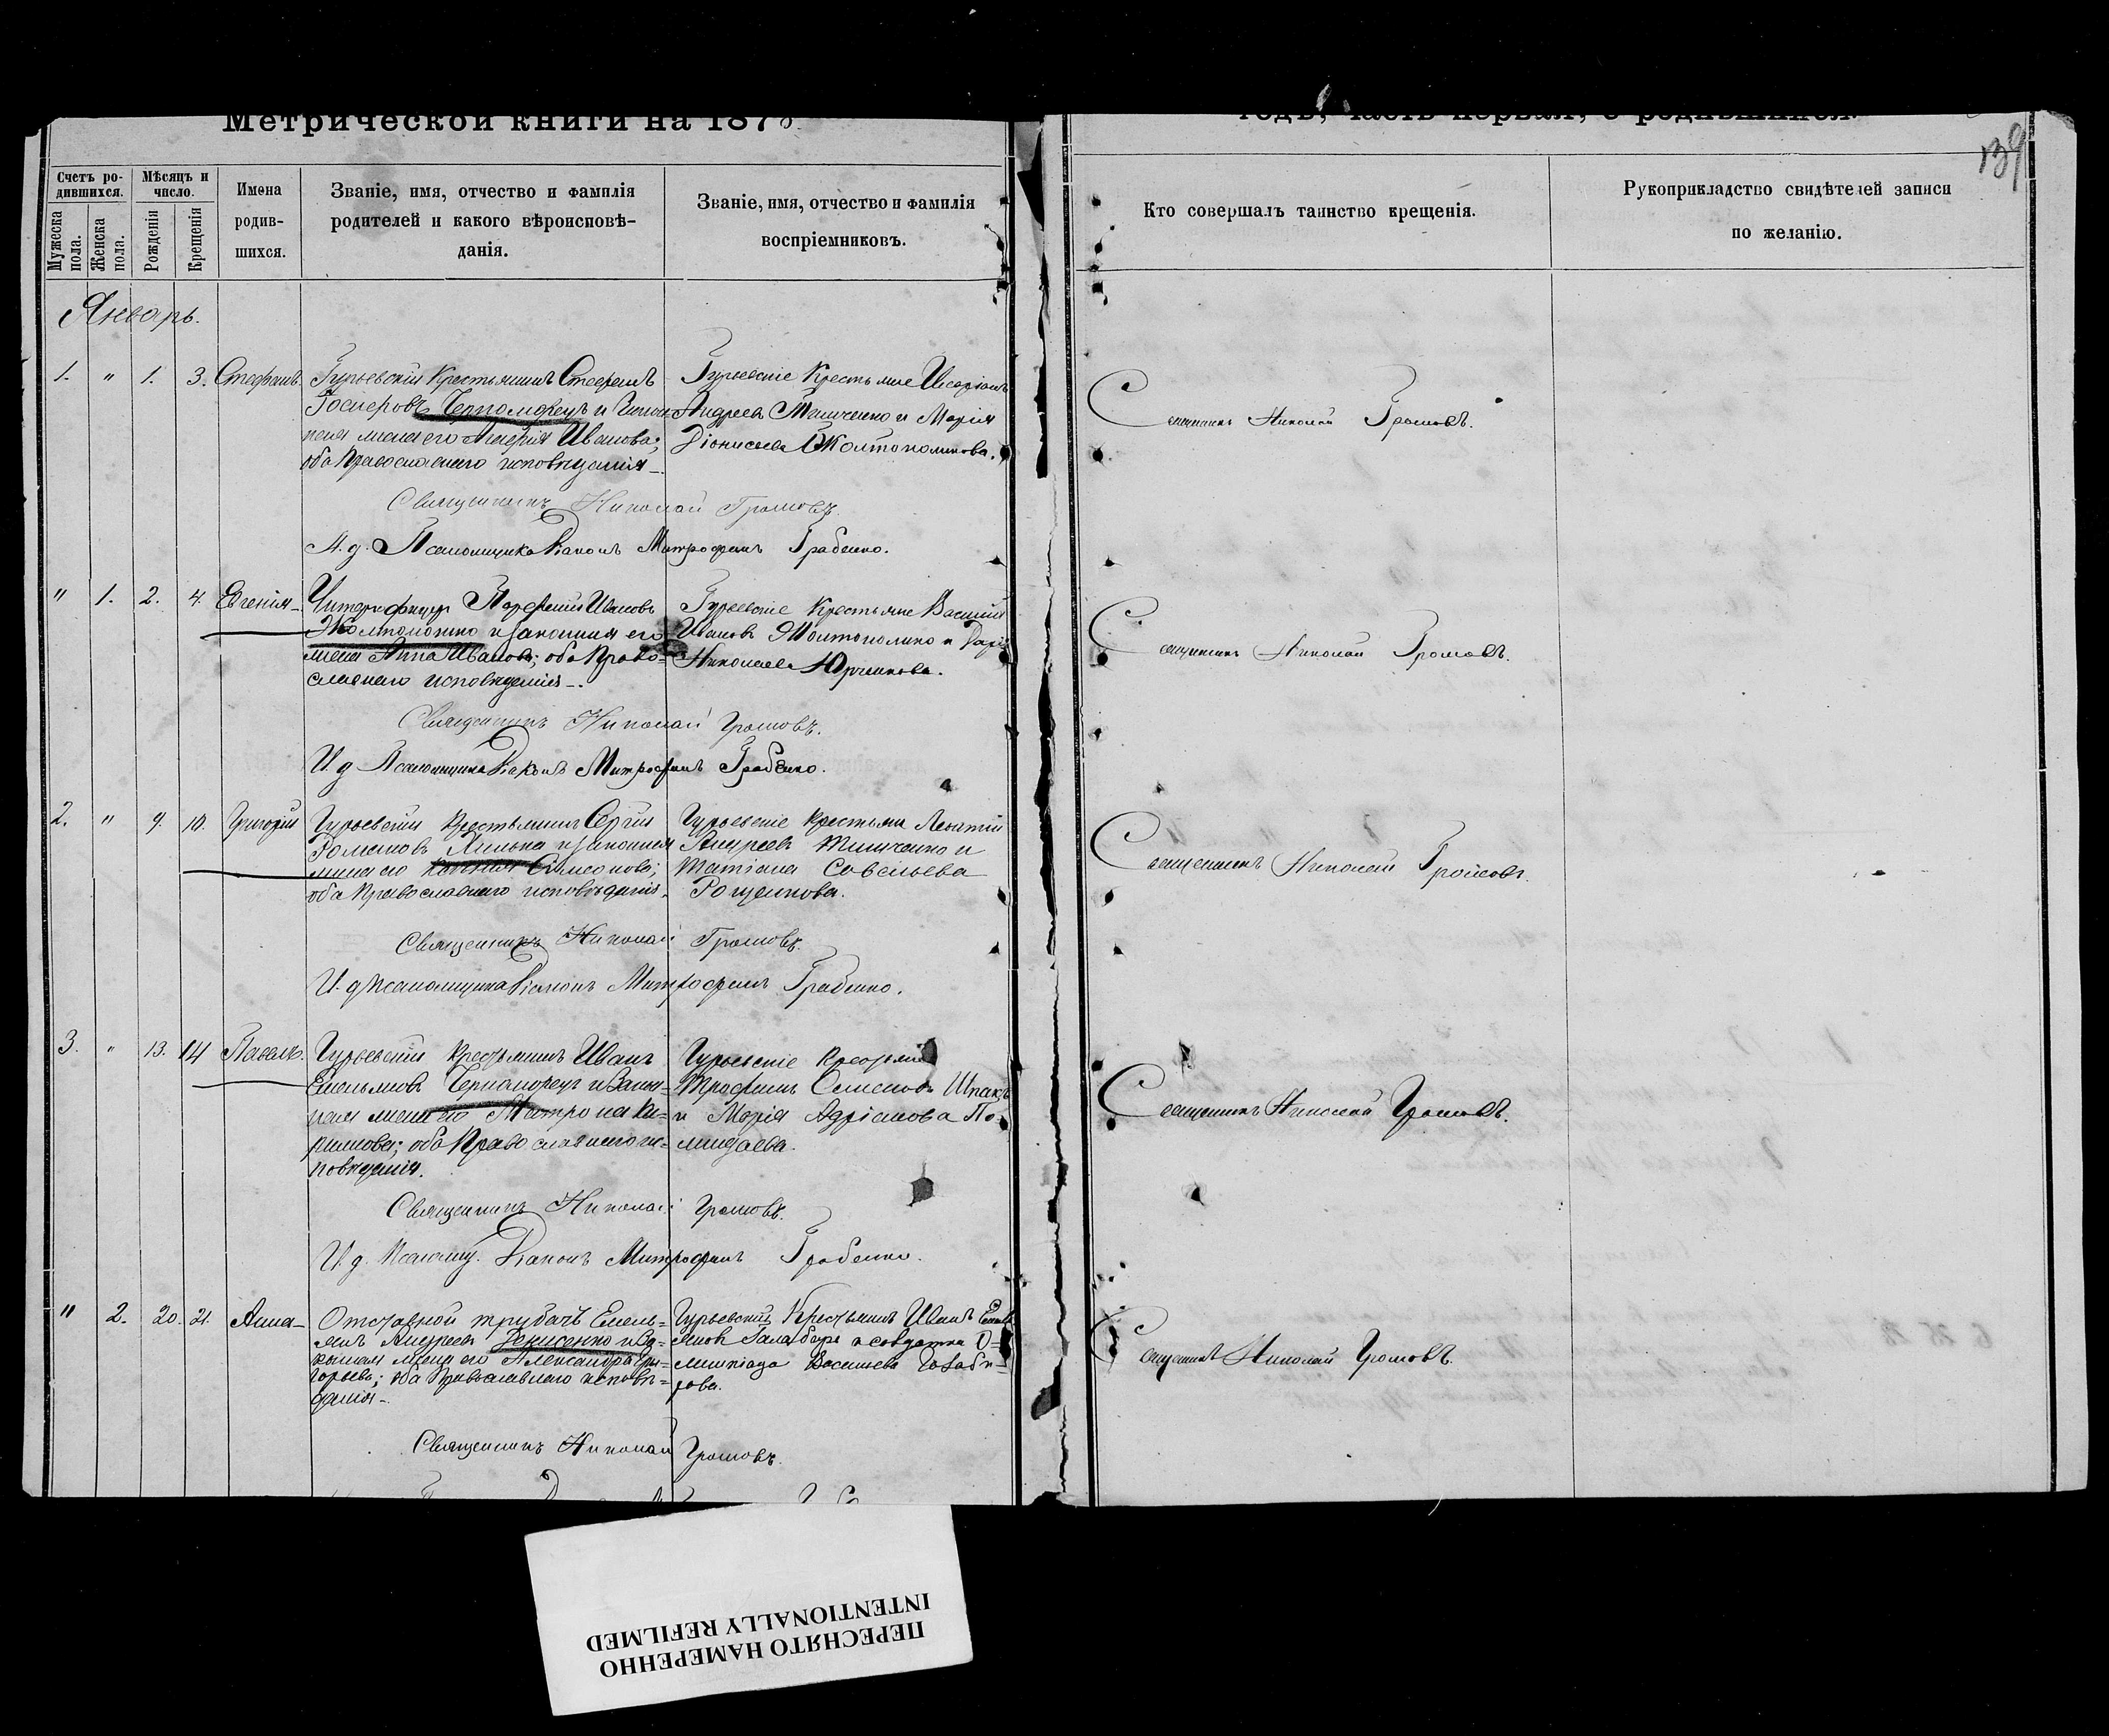 Метрической книги на 1878
годъ, часть первая, о родившихся.
139
Счетъ ро-
дившихся.
Мужеска
пола.
Женска
пола.
Мѣсяцъ и
число.
Рожденія
Крещенія
Имена
родив-
шихся.
Званіе, имя, отчество и фамилія
родителей и какого вѣроисповѣ-
данія.
Званіе, имя, отчество и фамилія
воспріемниковъ.
Кто совершалъ таинство крещенія.
Рукоприкладство свидѣтелей записи
по желанію.
Январь.
1. " 1. 3. Стефанъ.
Гурьевскій Крестьянинъ Стефанъ
Черноморецъ и
жена его Ивановa;
оба Православнаго исповѣданія
Гурьевскіе Крестьяне
Андреевъ и Марія
Діонисіева Жолтоноживова.
Священникъ Николай Громовъ.
Священникъ Николай Громовъ.
И. д. Псаломщика Діаконъ Митрофанъ Грабенко.
" 1. 2. 4. Евгенія
Унтерофицеръ Иванов
и законная его
жена Анна Иванова; оба Право-
славнаго исповѣданія.
Гурьевскіе Крестьяне Василій
Ивановъ и Дарія
Николаева Юрченкова.
Священникъ Николай Громовъ.
Священникъ Николай Громовъ.
И. д. Псаломщика Діаконъ Митрофанъ Грабенко.
2. " 9. 10. Григорій
Гурьевскій Крестьянинъ Сергій
Романовъ и законная
жена его Симеонова;
оба Православнаго исповѣданія.
Гурьевскіе Крестьяне Леонтій
Андреевъ и
Татіана Савельева
Рощенкова.
Священникъ Николай Громовъ.
Священникъ Николай Громовъ.
И. д. Псаломщика Діаконъ Митрофанъ Грабенко.
3. " 13. 14 Павелъ.
Гурьевскій Крестьянинъ Иванъ
Емельяновъ Черноморецъ и закон-
ная жена его Матрона Ки-
рилова; оба Православнаго ис-
повѣданія.
Гурьевскіе Крестьяне
Трофимъ Семеновъ Шпакъ
и Марія Адріанова По-
лищаева.
Священникъ Николай Громовъ.
Священникъ Николай Громовъ.
И. д. Псаломщ. Діаконъ Митрофанъ Грабенко.
" 2. 20. 21. Анна
Отставной трубачъ Емель-
янъ Андреевъ Денисенко и за-
конная жена его Александра Гри-
горьева; оба Православнаго исповѣ-
данія
Гурьевскій Крестьянинъ Иванъ
и солдатка О-
лимпіада Васильева
рова.
Священникъ Николай Громовъ.
Священникъ Николай Громовъ.
ПЕРЕСНЯТО НАМЕРЕННО
INTENTIONALLY REFILMED